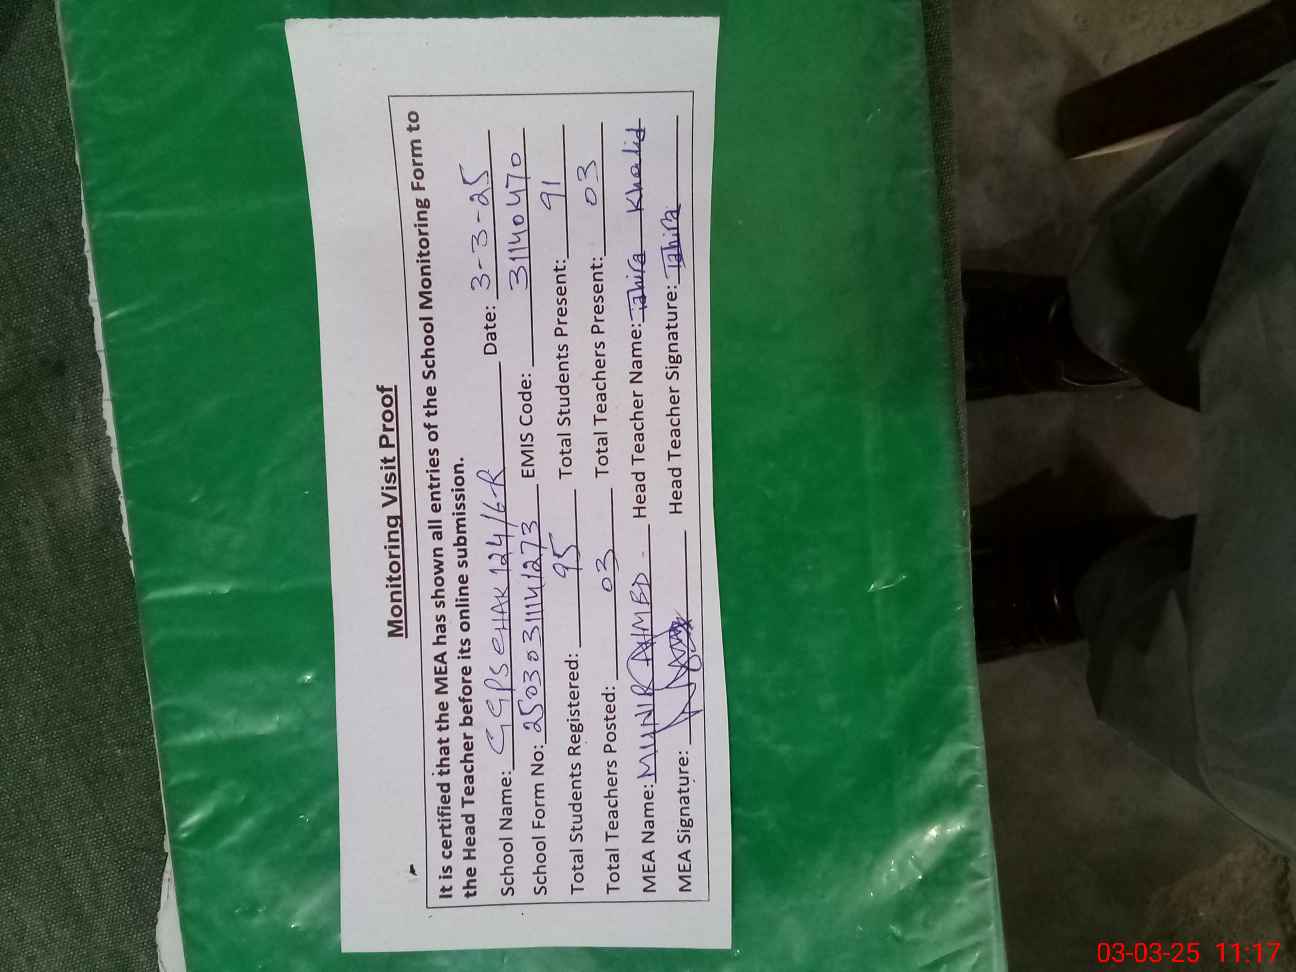 Monitoring Visit Proof
It is certified that the MEA has shown all entries of the School Monitoring Form to
the Head Teacher before its online submission.
School Name: GGPS CHAK 124/6-R Date: 3-3-25
School Form No: 25030311141273 EMIS Code: 31140470
Total Students Registered: 95 Total Students Present: 91
Total Teachers Posted: 03 Total Teachers Present: 03
MEA Name: MUNIR AHMED Head Teacher Name: Tahira Khalid
MEA Signature: Head Teacher Signature: Tahira
03-03-25 11:17